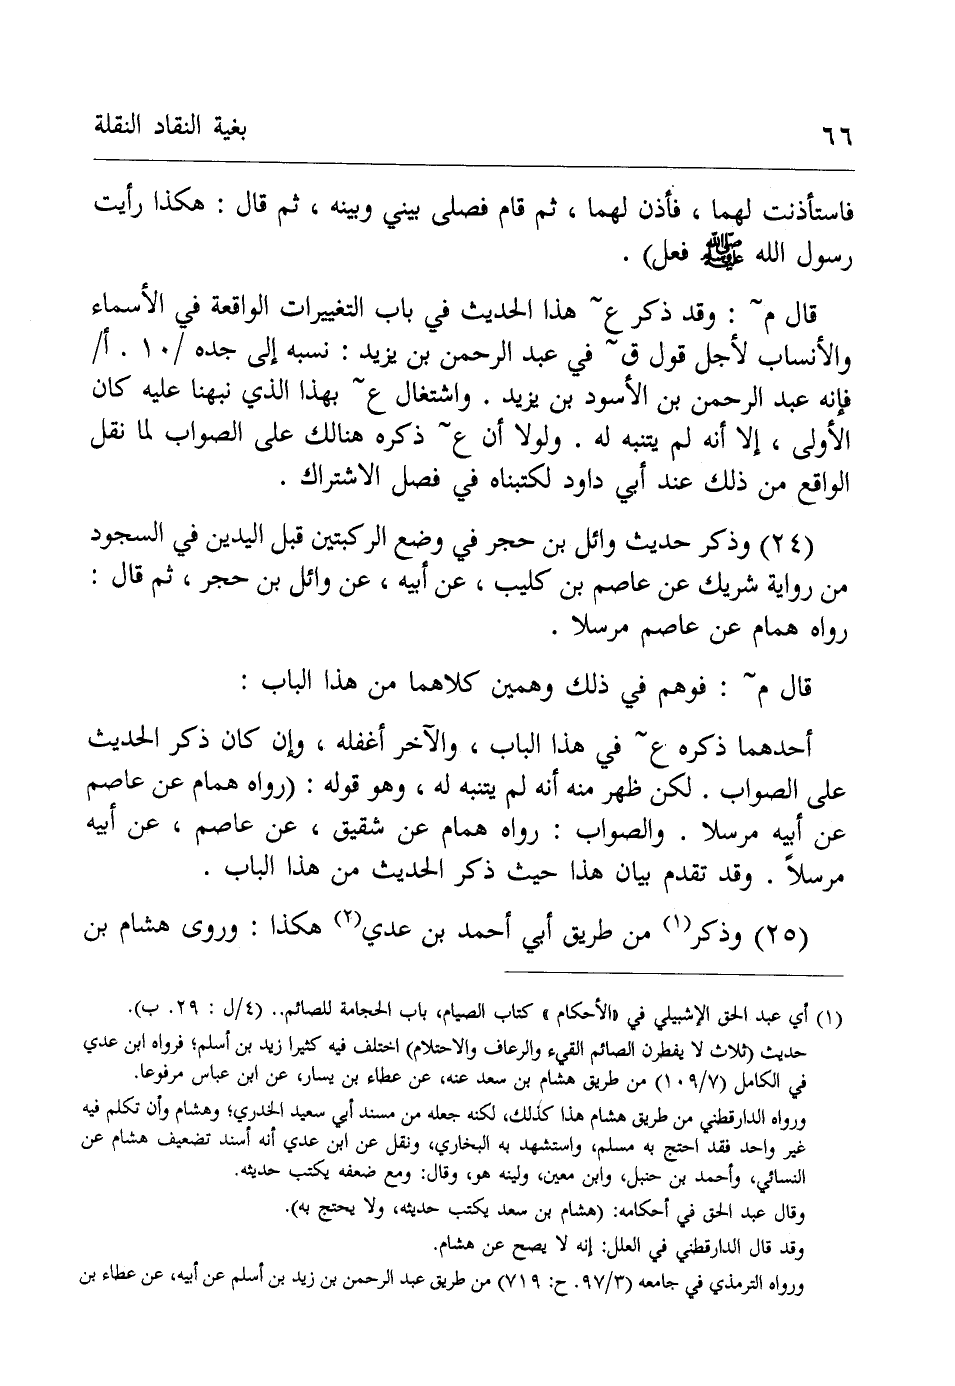 ٦٦ بغية النقاد النقلة
فاستأذنت لهما ، فأذن لهما ، ثم قام فصلى بيني وبينه ، ثم قال : هكذا رأيت
رسول الله ﷺ فعل) .
قال م~ : وقد ذكر ع~ هذا الحديث في باب التغييرات الواقعة في الأسماء
والأنساب لأجل قول ق~ في عبد الرحمن بن يزيد : نسبه إلى جده /١٠ . أ/
فإنه عبد الرحمن بن الأسود بن يزيد . واشتغال ع~ بهذا الذي نبهنا عليه كان
الأولى ، إلا أنه لم يتنبه له . ولولا أن ع~ ذكره هنالك على الصواب لما نقل
الواقع من ذلك عند أبي داود لكتبناه في فصل الاشتراك .
(٢٤) وذكر حديث وائل بن حجر في وضع الركبتين قبل اليدين في السجود
من رواية شريك عن عاصم بن كليب ، عن أبيه ، عن وائل بن حجر ، ثم قال :
رواه همام عن عاصم مرسلا .
قال م~ : فوهم في ذلك وهمين كلاهما من هذا الباب :
أحدهما ذكره ع~ في هذا الباب ، والآخر أغفله ، وإن كان ذكر الحديث
على الصواب . لكن ظهر منه أنه لم يتنبه له ، وهو قوله : (رواه همام عن عاصم
عن أبيه مرسلا . والصواب : رواه همام عن شقيق ، عن عاصم ، عن أبيه
مرسلاً . وقد تقدم بيان هذا حيث ذكر الحديث من هذا الباب .
(٢٥) وذكر(١) من طريق أبي أحمد بن عدي(٢) هكذا : وروى هشام بن
(١) أي عبد الحق الإشبيلي في «الأحكام » كتاب الصيام، باب الحجامة للصائم.. (٤/ل : ٢٩. ب).
حديث (ثلاث لا يفطرن الصائم القيء والرعاف والاحتلام) اختلف فيه كثيرا زيد بن أسلم؛ فرواه ابن عدي
في الكامل (١٠٩/٧) من طريق هشام بن سعد عنه، عن عطاء بن يسار، عن ابن عباس مرفوعا.
ورواه الدارقطني من طريق هشام هذا كذلك، لكنه جعله من مسند أبي سعيد الخدري؛ وهشام وأن تكلم فيه
غير واحد فقد احتج به مسلم، واستشهد به البخاري، ونقل عن ابن عدي أنه أسند تضعيف هشام عن
النسائي، وأحمد بن حنبل، وابن معين، ولينه هو، وقال: ومع ضعفه يكتب حديثه.
وقال عبد الحق في أحكامه: (هشام بن سعد يكتب حديثه، ولا يحتج به).
وقد قال الدارقطني في العلل: إنه لا يصح عن هشام.
ورواه الترمذي في جامعه (٩٧/٣. ح: ٧١٩) من طريق عبد الرحمن بن زيد بن أسلم عن أبيه، عن عطاء بن